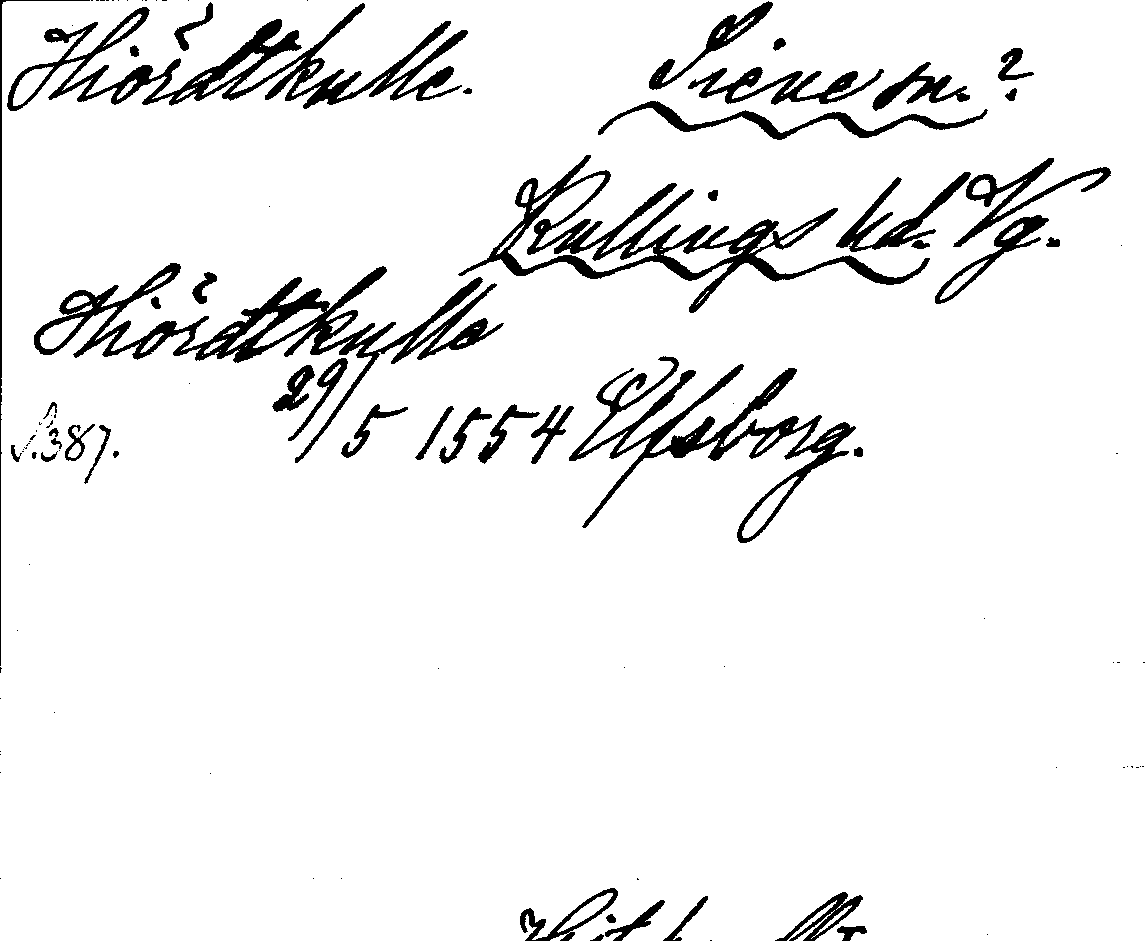 Hiördtkulle. Siene sn.?
Kullings hd. Vg.
Hiördtkulle
S. 387. 29/5 1554 Elfsborg.